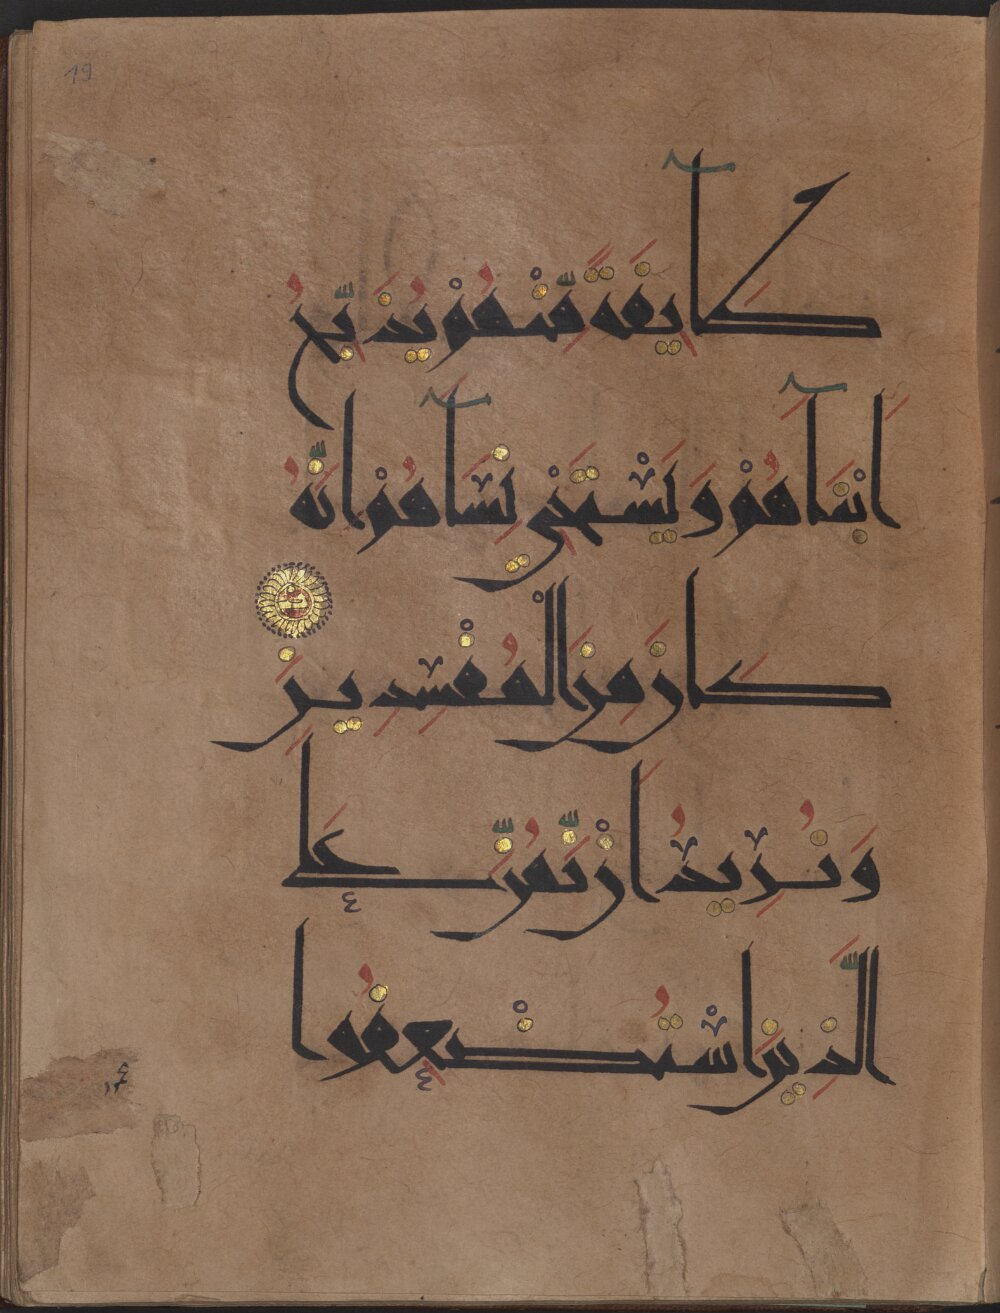 19
طَآئِفَةً مِّنْهُمْ يُذَبِّحُ
اَبْنَآءَهُمْ وَيَسْتَحْيِ نِسَآءَهُمْ اِنَّهُ
كَانَ مِنَ الْمُفْسِدِينَ
وَنُرِيدُ اَنْ نَّمُنَّ عَلَى
الَّذِينَ اسْتُضْعِفُوا